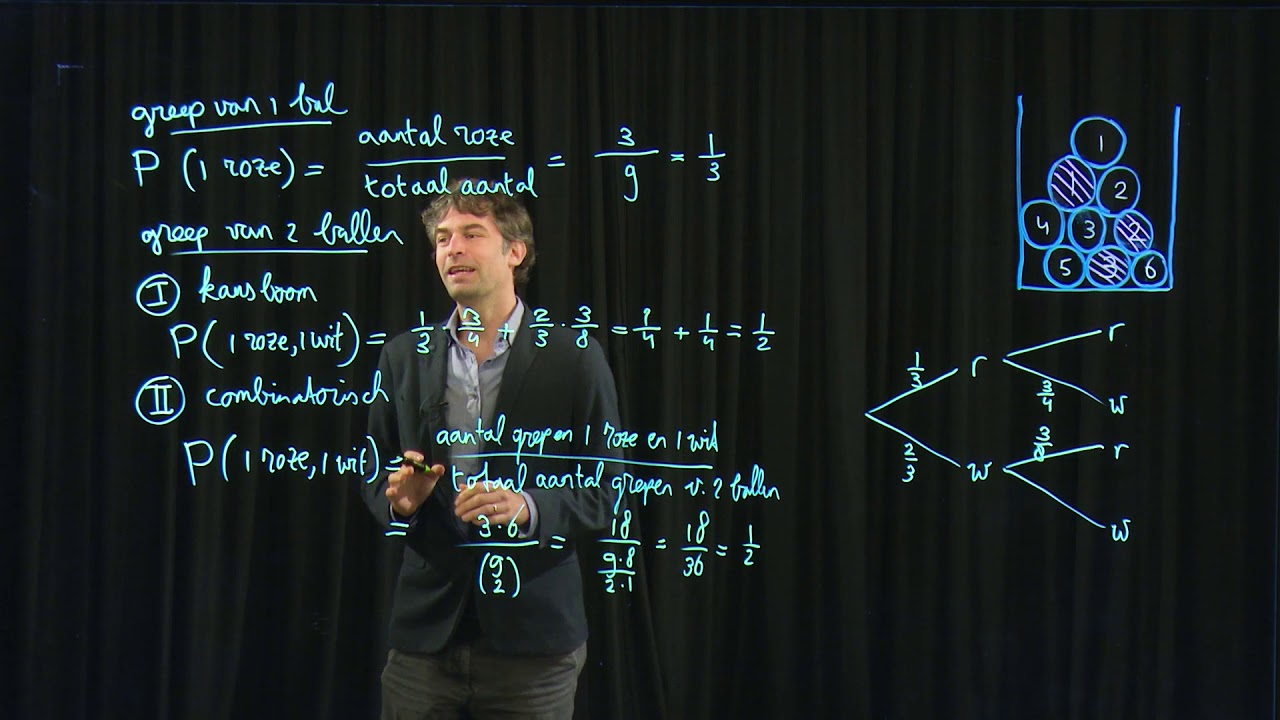 greep van 1 bal
P (1 roze) = aantal roze / totaal aantal = 3/9 = 1/3
greep van 2 ballen
I kansboom
P(1 roze, 1 wit) = 1/3 · 3/4 + 2/3 · 3/8 = 1/4 + 1/4 = 1/2
II combinatorisch
P(1 roze, 1 wit) = aantal grepen 1 roze en 1 wit / totaal aantal grepen v. 2 ballen
= 3·6 / (9 2) = 18 / (9·8 / 2·1) = 18/36 = 1/2
1
1 2
4 3 2
5 3 6
1/3 r r
3/4 w
2/3 w 3/8 r
w